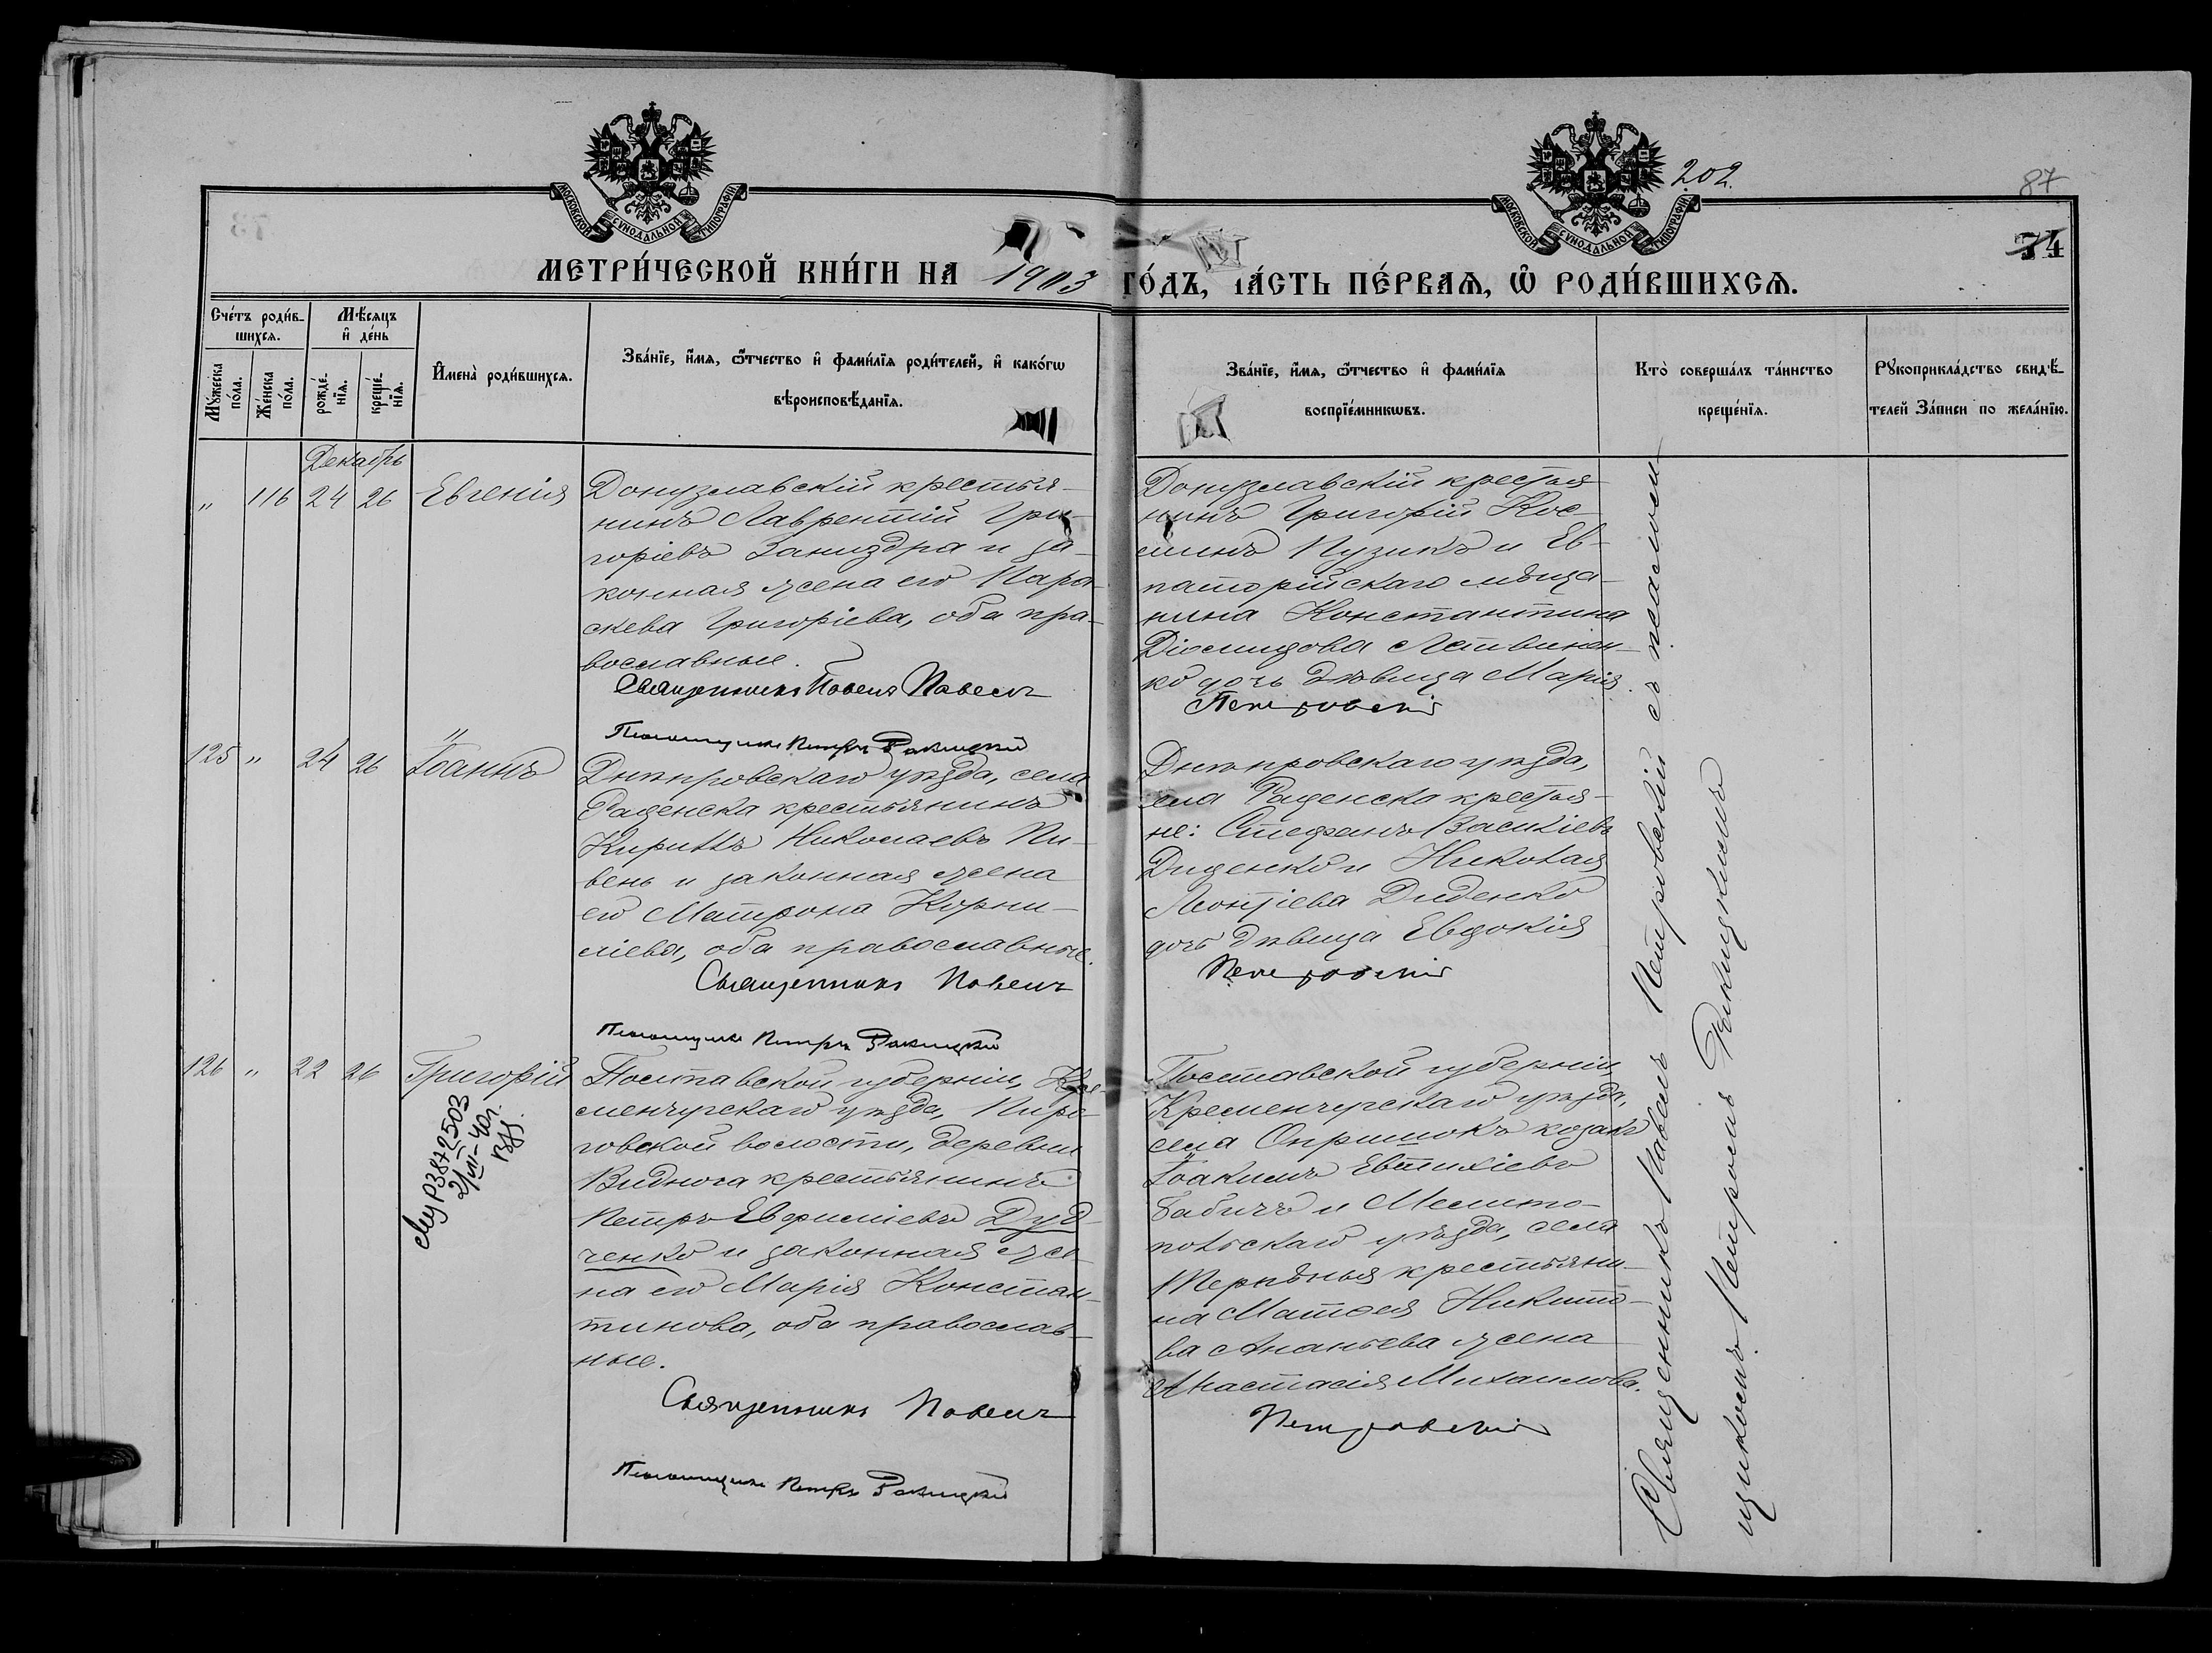 202.
87
74
МОСКОВСКОЙ СУНОДАЛЬНОЙ ТИПОГРАФІИ
МОСКОВСКОЙ СУНОДАЛЬНОЙ ТИПОГРАФІИ
МЕТРИ́ЧЕСКОЙ КНИ́ГИ НА 1903 ГО́ДЪ, ЧА́СТЬ ПЕ́РВАѦ, Ѽ РОДИ́ВШИХСѦ.
Сче́тъ роди́в-
шихсѧ.
Мꙋ́жеска по́ла.
Же́нска по́ла.
Мѣ́сѧцъ
и҆ де́нь
рожде́-
нїѧ.
креще́-
нїѧ.
И҆мена̀ роди́вшихсѧ.
Зва́нїе, и҆́мѧ, ѻ҆́тчество и҆ фами́лїѧ роди́телей, и҆ како́гѡ
вѣроисповѣ́данїѧ.
Зва́нїе, и҆́мѧ, ѻ҆́тчество и҆ фами́лїѧ
воспрїе́мникѡвъ.
Кто̀ соверша́лъ та́инство
креще́нїѧ.
Рꙋкоприкла́дство свидѣ́-
телей За́писи по жела́нїю.
Декабрь
" 116 24 26 Евгенія
Донузлавскій крестья-
нинъ Лаврентій Гри-
горіевъ Заниздра и за-
конная жена его Пара-
скева Григоріева, оба пра-
вославные.
Священникъ Павелъ
Псаломщикъ Петръ Ракицкій
Донузлавскій крестья-
нинъ Григорій Кос-
минъ Пузикъ и Ев-
паторійскаго мѣща-
нина Константина
Діомидова Летвинен-
ко дочь дѣвица Марія.
Петровскій
125 " 24 26 Іоаннъ
Днѣпровскаго уѣзда, села
Раденска крестьянинъ
Кириллъ Николаевъ Пи-
вень и законная жена
его Матрона Корни-
ліева, оба православные.
Священникъ Павелъ
Псаломщикъ Петръ Ракицкій
Днѣпровскаго уѣзда,
села Раденска крестья-
не: Стефанъ Василіевъ
Диденко и Николая
Леонтіева Диденко
дочь дѣвица Евдокія
Петровскій
126 " 22 26 Григорій
Полтавской губерніи, Кре-
менчугскаго уѣзда, Пиро-
говской волости, деревни
Виднога крестьянинъ
Петръ Евфиміевъ Дуд-
ченко и законная же-
на его Марія Констан-
тинова, оба православ-
ные.
Священникъ Павелъ
Псаломщикъ Петръ Ракицкій
Полтавской губерніи,
Кременчугскаго уѣзда,
села Опришокъ козакъ
Іоакимъ Евтихіевъ
Бабичъ и Мелито-
польскаго уѣзда, села
Терпѣнья крестьяни-
на Матѳея Никито-
ва Ананьева жена
Анастасія Михаилова.
Петровскій
Священникъ Павелъ Петровскій съ псалом-
щикомъ Петромъ Ракицкимъ